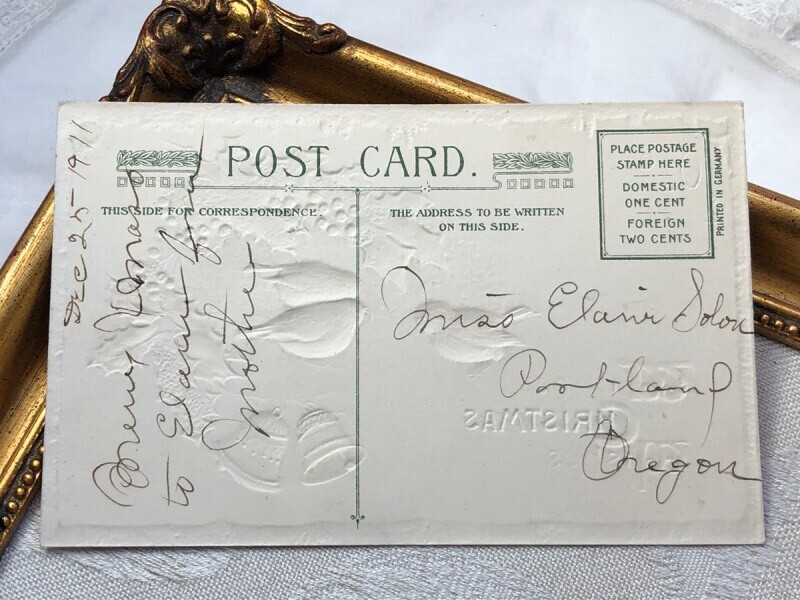 POST CARD.
THIS SIDE FOR CORRESPONDENCE.
THE ADDRESS TO BE WRITTEN
ON THIS SIDE.
PLACE POSTAGE
STAMP HERE
DOMESTIC
ONE CENT
FOREIGN
TWO CENTS
PRINTED IN GERMANY
Dec 25-1911
Merry Xmas
to Elaine from
Mother
Miss Elaine Solon
Portland
Oregon
CHRISTMAS